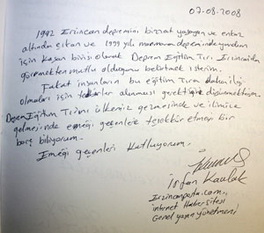 07.08.2008
1992 Erzincan depremini bizzat yaşayan ve enkaz
altından çıkan ve 1999 yılı marmara depreminde yardım
için koşan birisi olarak Deprem Eğitim Tırı Erzincan'da
görmekten mutlu olduğumu belirtmek isterim.
Fakat insanların bu eğitim Tırına
olmaları için alınması gerektiğini düşünmekteyim.
Deprem Eğitim Tırını ülkemiz gelmesinde ve ilimize
gelmesinde emeği geçenlere teşekkür etmeyi bir
borç biliyorum.
Emeği geçenleri kutluyorum.
İrfan Kaulak
Erzincanposta.com
internet Haber sitesi
Genel yayın yönetmeni